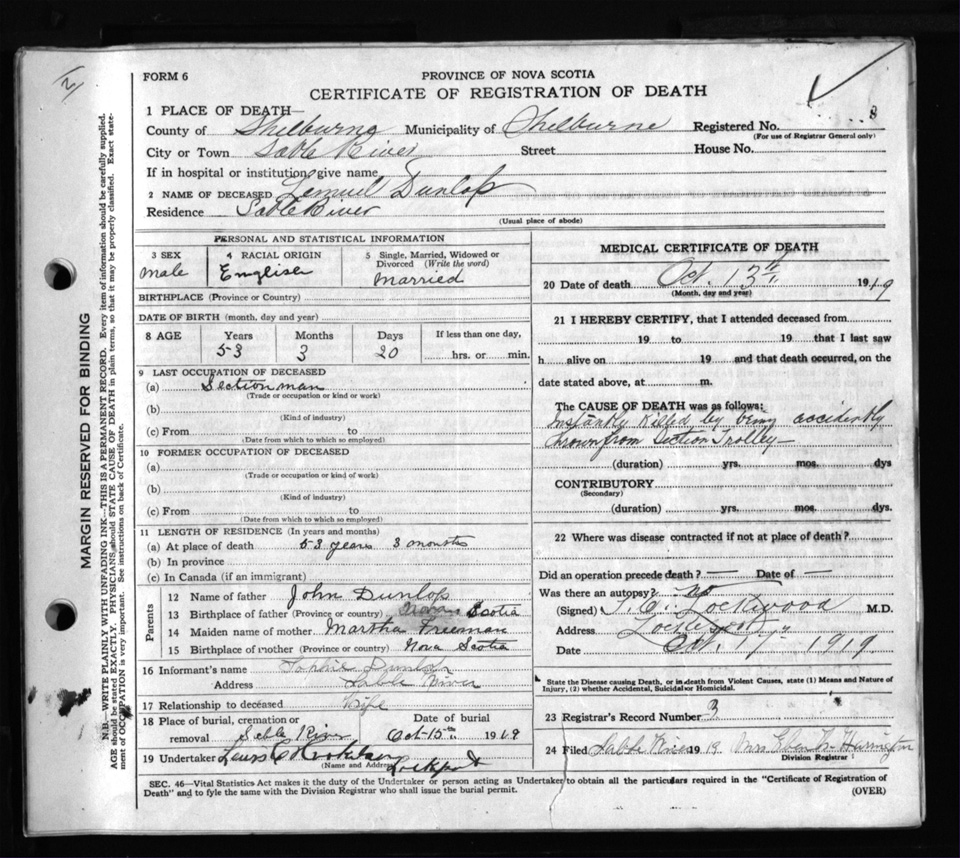 FORM 6
PROVINCE OF NOVA SCOTIA
CERTIFICATE OF REGISTRATION OF DEATH
1 PLACE OF DEATH—
County of Shelburne Municipality of Shelburne Registered No. 3
(For use of Registrar General only)
City or Town Sable River Street House No.
If in hospital or institution, give name
2 NAME OF DECEASED Lemuel Dunlop
Residence Sable River
(Usual place of abode)
MARGIN RESERVED FOR BINDING
N.B.—WRITE PLAINLY WITH UNFADING INK—THIS IS A PERMANENT RECORD. Every item of information should be carefully supplied.
AGE should be stated EXACTLY. PHYSICIANS should STATE CAUSE OF DEATH in plain terms, so that it may be properly classified. Exact state-
ment of OCCUPATION is very important. See instructions on back of Certificate.
PERSONAL AND STATISTICAL INFORMATION
3 SEX
Male
4 RACIAL ORIGIN
English
5 Single, Married, Widowed or
Divorced (Write the word)
Married
BIRTHPLACE (Province or Country)
DATE OF BIRTH (month, day and year)
8 AGE Years Months Days If less than one day,
53 3 20 hrs. or min.
9 LAST OCCUPATION OF DECEASED
(a) Section man
(Trade or occupation or kind or work)
(b)
(Kind of industry)
(c) From to
(Date from which to which so employed)
10 FORMER OCCUPATION OF DECEASED
(a)
(Trade or occupation or kind of work)
(b)
(Kind of industry)
(c) From to
(Date from which to which so employed)
11 LENGTH OF RESIDENCE (In years and months)
(a) At place of death 53 years 3 months
(b) In province
(c) In Canada (if an immigrant)
Parents
12 Name of father John Dunlop
13 Birthplace of father (Province or country) Nova Scotia
14 Maiden name of mother Martha Freeman
15 Birthplace of mother (Province or country) Nova Scotia
16 Informant's name Dunlop
Address Sable River
17 Relationship to deceased Wife
18 Place of burial, cremation or Date of burial
removal Sable River Oct 15th 1919
19 Undertaker Lockeport
(Name and Address)
MEDICAL CERTIFICATE OF DEATH
20 Date of death Oct. 13th 1919
(Month, day and year)
21 I HEREBY CERTIFY, that I attended deceased from
19 to 19 that I last saw
h alive on 19 and that death occurred, on the
date stated above, at m.
The CAUSE OF DEATH was as follows:
Instantly Killed by being accidently
thrown from Section Trolley—
(duration) yrs. mos. dys
CONTRIBUTORY
(Secondary)
(duration) yrs. mos. dys.
22 Where was disease contracted if not at place of death?
Did an operation precede death? — Date of —
Was there an autopsy? No
(Signed) Lockwood M.D.
Address Lockeport
Date Oct. 17" 1919.
State the Disease causing Death, or in death from Violent Causes, state (1) Means and Nature of
Injury, (2) whether Accidental, Suicidal or Homicidal.
23 Registrar's Record Number 3
24 Filed Sable River 1919 Mrs Eben Harrington
Division Registrar
SEC. 46—Vital Statistics Act makes it the duty of the Undertaker or person acting as Undertaker to obtain all the particulars required in the "Certificate of Registration of
Death" and to fyle the same with the Division Registrar who shall issue the burial permit.
(OVER)